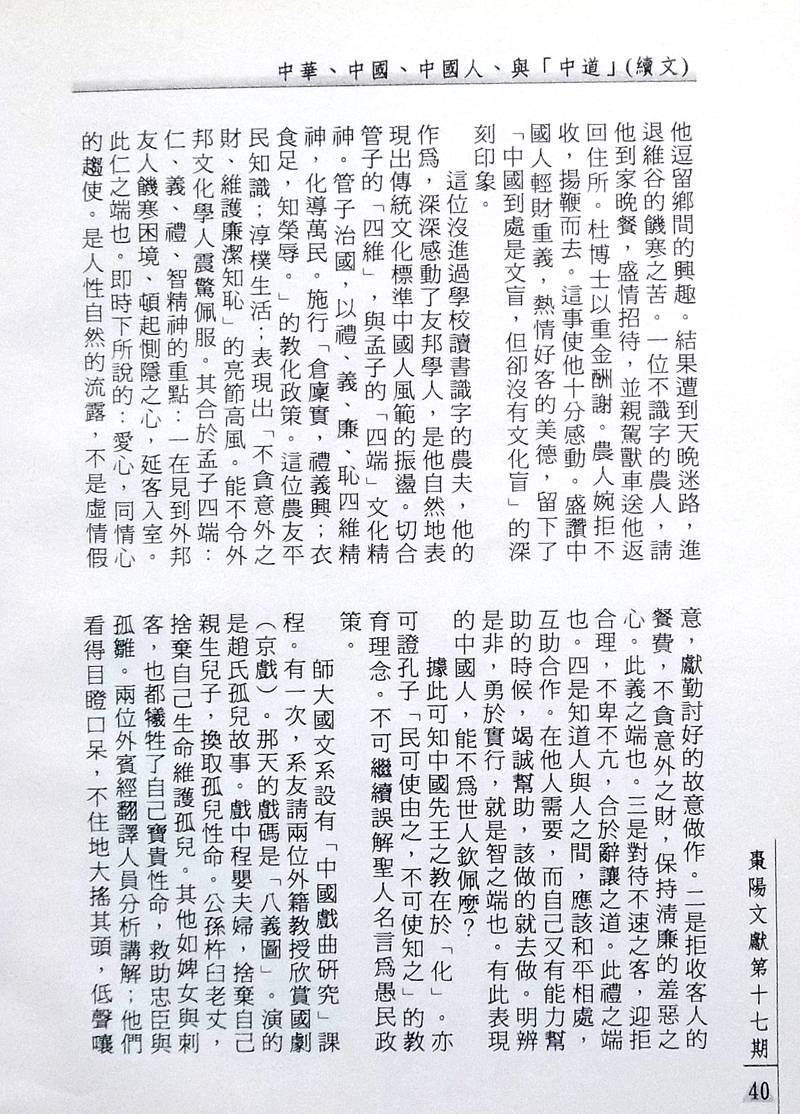 中華、中國、中國人、與「中道」(續文)
他逗留鄉間的興趣。結果遭到天晚迷路，進
退維谷的饑寒之苦。一位不識字的農人，請
他到家晚餐，盛情招待，並親駕獸車送他返
回住所。杜博士以重金酬謝。農人婉拒不
收，揚鞭而去。這事使他十分感動。盛讚中
國人輕財重義，熱情好客的美德，留下了
「中國到處是文盲，但卻沒有文化盲」的深
刻印象。
這位沒進過學校讀書識字的農夫，他的
作爲，深深感動了友邦學人，是他自然地表
現出傳統文化標準中國人風範的振盪。切合
管子的「四維」，與孟子的「四端」文化精
神。管子治國，以禮、義、廉、恥四維精
神，化導萬民。施行「倉廩實，禮義興；衣
食足，知榮辱。」的教化政策。這位農友平
民知識；淳樸生活；表現出「不貪意外之
財、維護廉潔知恥」的亮節高風。能不令外
邦文化學人震驚佩服。其合於孟子四端：
仁、義、禮、智精神的重點：一在見到外邦
友人饑寒困境、頓起惻隱之心，延客入室。
此仁之端也。即時下所說的：愛心，同情心
的趨使。是人性自然的流露，不是虛情假
意，獻勤討好的故意做作。二是拒收客人的
餐費，不貪意外之財，保持清廉的羞惡之
心。此義之端也。三是對待不速之客，迎拒
合理，不卑不亢，合於辭讓之道。此禮之端
也。四是知道人與人之間，應該和平相處，
互助合作。在他人需要，而自己又有能力幫
助的時候，竭誠幫助，該做的就去做。明辨
是非，勇於實行，就是智之端也。有此表現
的中國人，能不爲世人欽佩麼？
據此可知中國先王之教在於「化」。亦
可證孔子「民可使由之，不可使知之」的教
育理念。不可繼續誤解聖人名言爲愚民政
策。
師大國文系設有「中國戲曲研究」課
程。有一次，系友請兩位外籍教授欣賞國劇
（京戲）。那天的戲碼是「八義圖」。演的
是趙氏孤兒故事。戲中程嬰夫婦，捨棄自己
親生兒子，換取孤兒性命。公孫杵臼老丈，
捨棄自己生命維護孤兒。其他如婢女與刺
客，也都犧牲了自己寶貴性命，救助忠臣與
孤雛。兩位外賓經翻譯人員分析講解；他們
看得目瞪口呆，不住地大搖其頭，低聲嚷
棗陽文獻第十七期
40